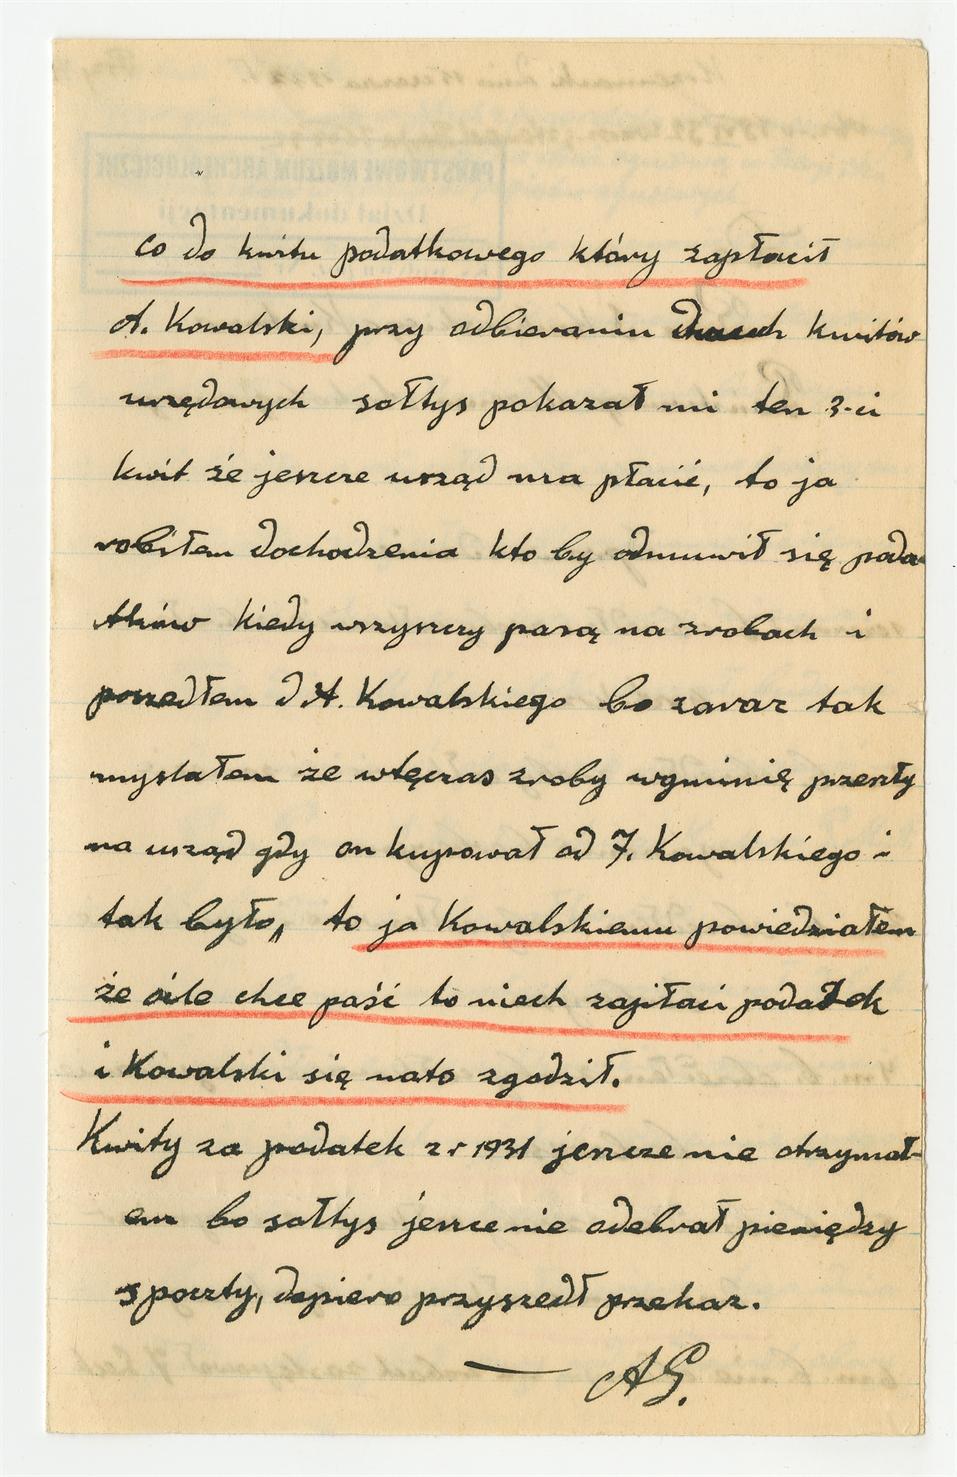 co do kwitu podatkowego który zapłacił
A. Kowalski, przy odbieraniu dwuch kwitów
urzędowych sołtys pokazał mi ten 3-ci
kwit że jeszcze urząd ma płacić, to ja
robiłem dochodzenia kto by odmuwił się poda-
tków kiedy wszyszcy pasą na zrobach i
poszedłem d A. Kowalskiego bo zaraz tak
myslałem że wtęczas zroby wgminię przeszły
na urząd gdy on kupował od J. Kowalskiego i
tak było, to ja Kowalskiemu powiedziałem
że oile chce paść to niech zapłaci podatek
i Kowalski się nato zgodził.
Kwity za podatek z r 1931 jeszcze nie otrzymał-
em bo sołtys jeszce nie odebrał pieniędzy
s poczty, dopiero przyszedł przekaz.
— AG.